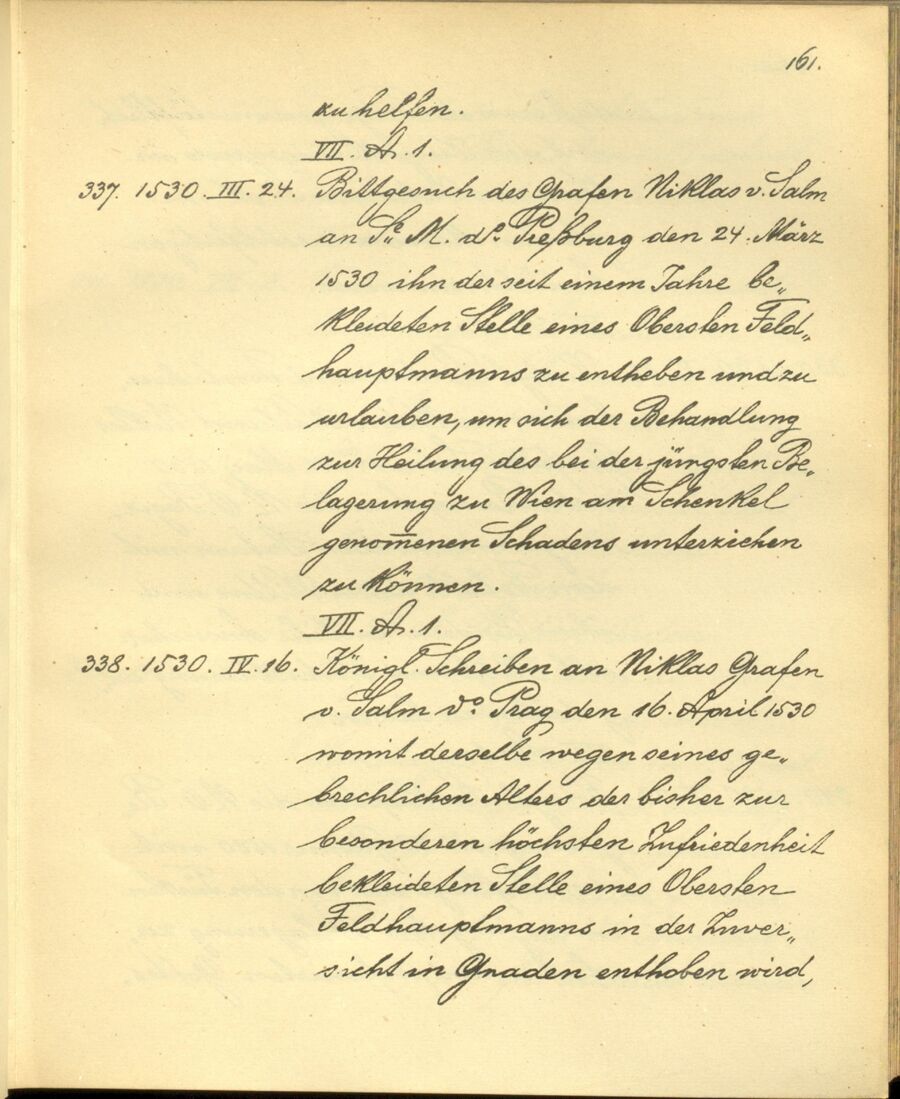 161.
zu helfen.
VII. A. 1.
337. 1530. III. 24. Bittgesuch des Grafen Niklas v. Salm
an Se. M. do. Preßburg den 24. März
1530 ihn der seit einem Jahre be„
kleideten Stelle eines Obersten Feld„
hauptmanns zu entheben und zu
urlauben, um sich der Behandlung
zur Heilung des bei der jüngsten Be„
lagerung zu Wien am Schenkel
genom̄enen Schadens unterziehen
zu können.
VII. A. 1.
338. 1530. IV. 16. Königl. Schreiben an Niklas Grafen
v. Salm do. Prag den 16. April 1530
womit derselbe wegen seines ge„
brechlichen Alters der bisher zur
besonderen höchsten Zufriedenheit
bekleideten Stelle eines Obersten
Feldhauptmanns in der Zuver„
sicht in Gnaden enthoben wird,